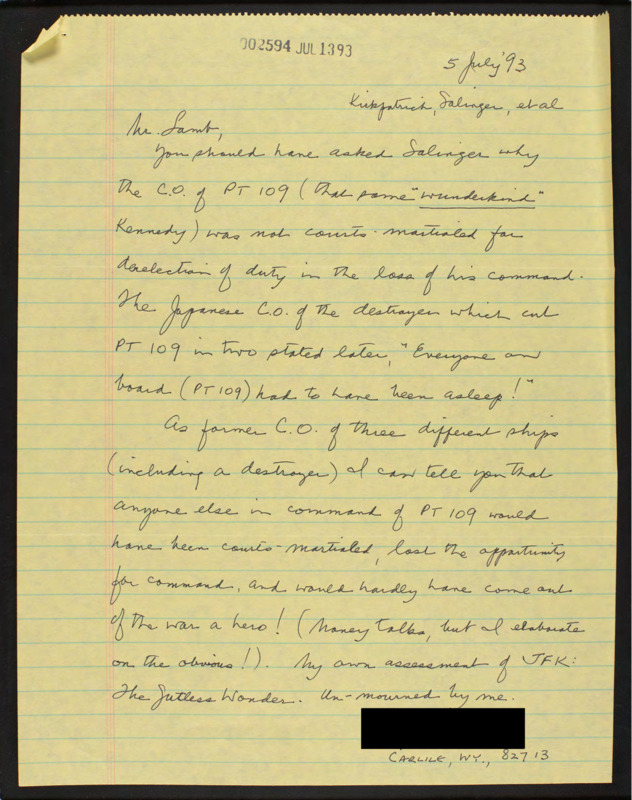 002594 JUL 1393
5 July '93
Kirkpatrick, Salinger, et al
Mr. Lamb,
You should have asked Salinger why
the C.O. of PT 109 (that same "wunderkind"
Kennedy) was not courts-martialed for
derelection of duty in the loss of his command.
The Japanese C.O. of the destroyer which cut
PT 109 in two stated later, "Everyone on
board (PT 109) had to have been asleep!"
As former C.O. of three different ships
(including a destroyer) I can tell you that
anyone else in command of PT 109 would
have been courts-martialed, lost the opportunity
for command, and would hardly have come out
of the war a hero! (Money talks, but I elaborate
on the obvious!). My own assessment of JFK:
The Gutless Wonder. Un-mourned by me.
CARLILE, WY., 82713